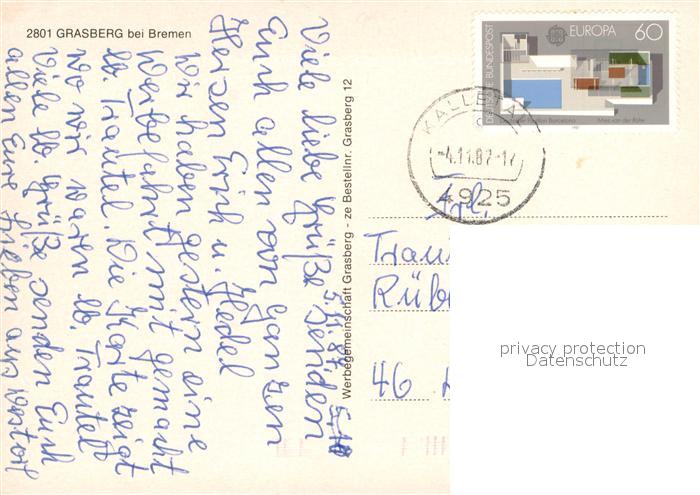 2801 GRASBERG bei Bremen
5.11.87
Viele liebe Grüße senden
Euch allen von ganzen
Herzen Erich u. Hedel
Wir haben gestern eine
Werbefahrt mit gemacht
lb. Trautel. Die Karte zeigt
wo wir waren lb. Trautel
Viele lb. Grüße senden Euch
allen Eure Lieben aus
Werbegemeinschaft Grasberg - ze Bestellnr. Grasberg 12
DEUTSCHE BUNDESPOST
EUROPA 60
Pavillon Barcelona
Mies van der Rohe
1987
KALLETAL
-4.11.87-17
4925
Trau
Rüb
46
privacy protection
Datenschutz